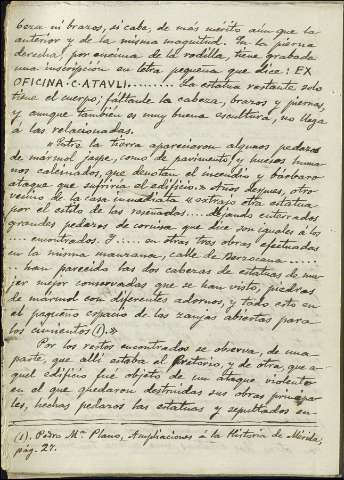 beza ni brazos, si cabe, de más merito aún que la
anterior y de la misma magnitud. En la pierna
derecha, por encima de la rodilla, tiene grabada
una inscripción en letra pequeña que dice: EX
OFICINA·C·ATAVLI......... La estatua restante solo
tiene el cuerpo; faltanle la cabeza, brazos y piernas,
y aunque tambien es muy buena escultura, no llega
á las relacionadas.
"Entre la tierra aparecieron algunos pedazos
de mármol jaspe, como de pavimento, y huesos huma-
nos calcinados, que denotan el incendio y bárbaro
ataque que sufriría el edificio." Años despues, otro
vecino de la casa inmediata "extrajo otra estatua
por el estilo de las reseñadas.... dejando enterrados
grandes pedazos de cornisa, que dice son iguales á los
... encontrados. Y..... en otras tres obras efectuadas
en la misma manzana, calle de Berzocana.....
... han parecido las dos cabezas de estatuas de mu-
jer mejor conservadas que se han visto, piedras
de mármol con diferentes adornos, y todo esto en
el pequeño espacio de las zanjas abiertas para
los cimientos (1)."
Por los restos encontrados se observa, de una
parte, que allí estaba el Pretorio, y de otra, que a-
quel edificio fué objeto de un ataque violento
en el que quedaron destruidas sus obras principa-
les, hechas pedazos las estatuas y sepultados en-
(1). Pedro Mª Plano, Ampliaciones á la Historia de Mérida;
pág. 27.